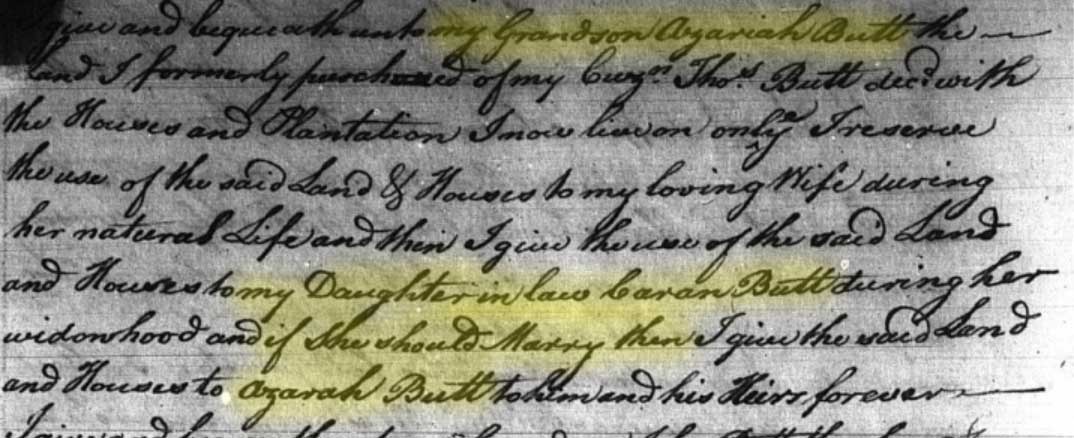 give and bequeath unto my Grandson Azariah Butt the
land I formerly purchased of my Cuzn. Thos. Butt decd. with
the Houses and Plantation I now live on only I reserve
the use of the said Land & Houses to my loving Wife during
her natural Life and then I give the use of the said Land
and Houses to my Daughter in law Caran Butt during her
widowhood and if She should Marry then I give the said Land
and Houses to Azarah Butt to him and his Heirs forever